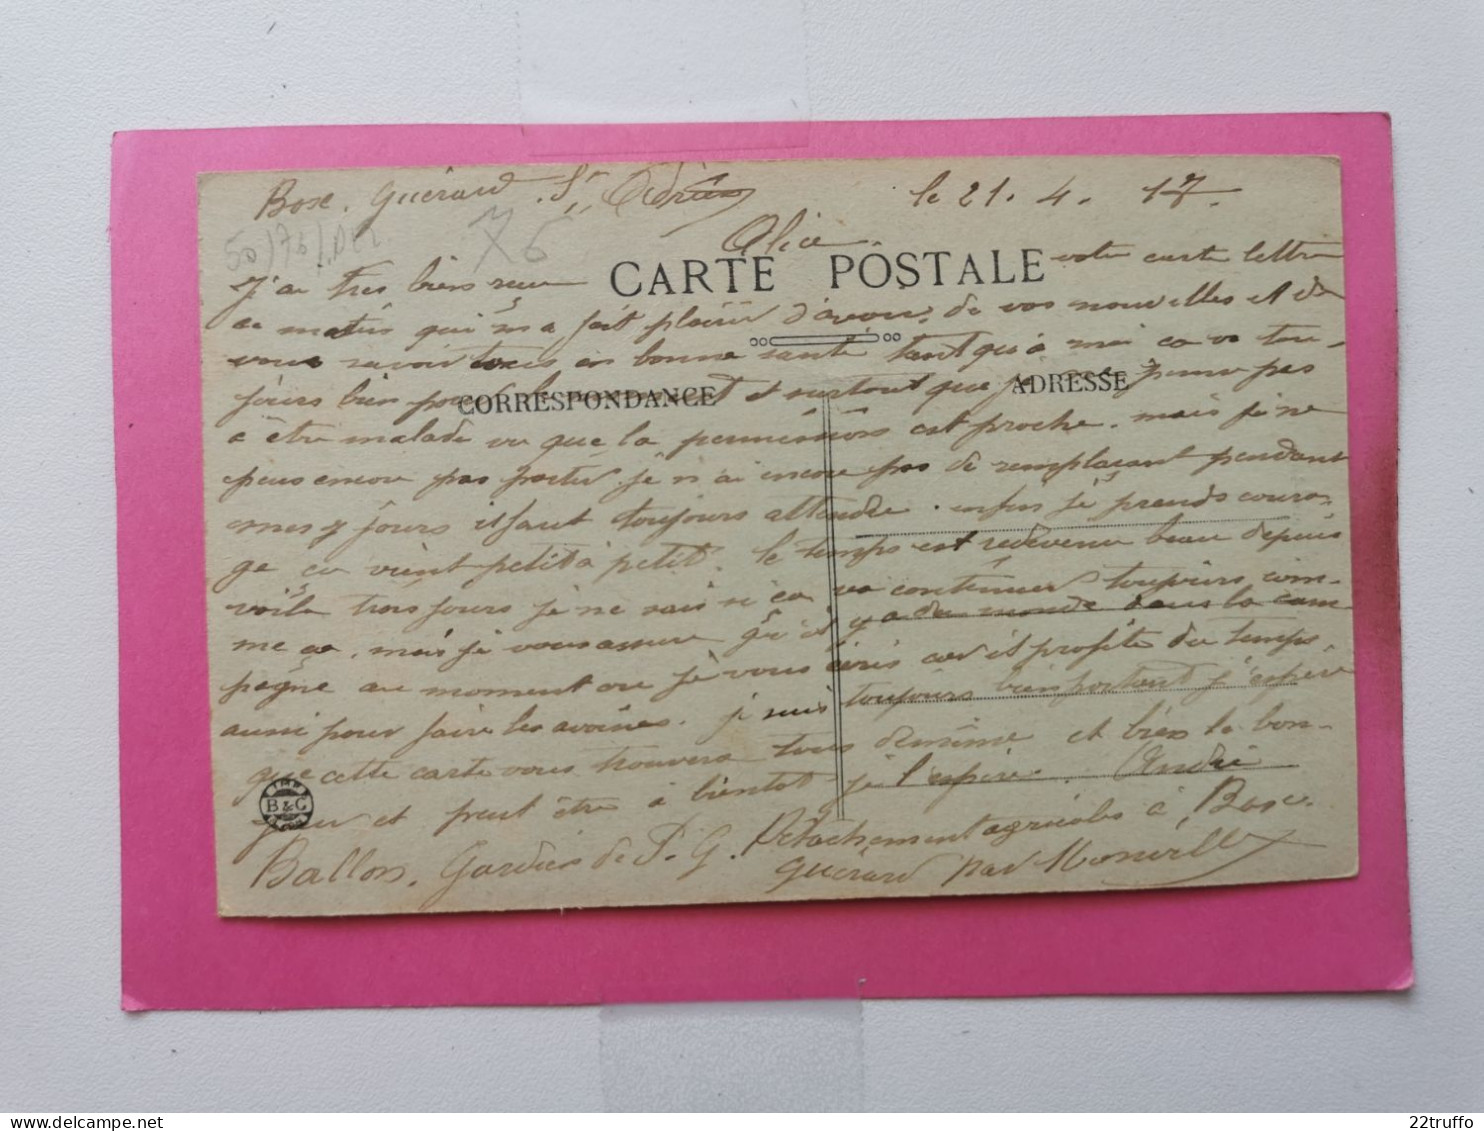 Bosc. Guérard. St. Adrien le 21. 4. 17.
50/76/DEL 76
Alice.
CARTE POSTALE
J'ai très bien reçu votre carte lettre
ce matin qui m'a fait plaisir d'avoir de vos nouvelles et de
vous savoir tous en bonne santé tant qu'à moi ca va tou-
jours bien pour le moment et surtout que je ne pense pas
CORRESPONDANCE ADRESSE
a être malade vu que la permissions est proche. mais je ne
peus encore pas partir je n'ai encore pas de remplaçant pendant
mes 7 jours il faut toujours attendre. enfin je prends coura-
ge ça vient petit à petit. le temps est redevenu beau depuis
voila trois jours je ne sais si ca va continuer toujours com-
me ca. mais je vous assure qu'il y a du monde dans la cam
pagne au moment ou je vous écris car il profite du temps
aussi pour faire les avoines. je suis toujours bien portant j'espère
que cette carte vous trouvera tous de même et bien le bon-
jour et peut être à bientot je l'espère. André
B & G
Ballon. Gardien de P. G. Détachement agricoles à Bosc.
Guérard par Monville
22truffo